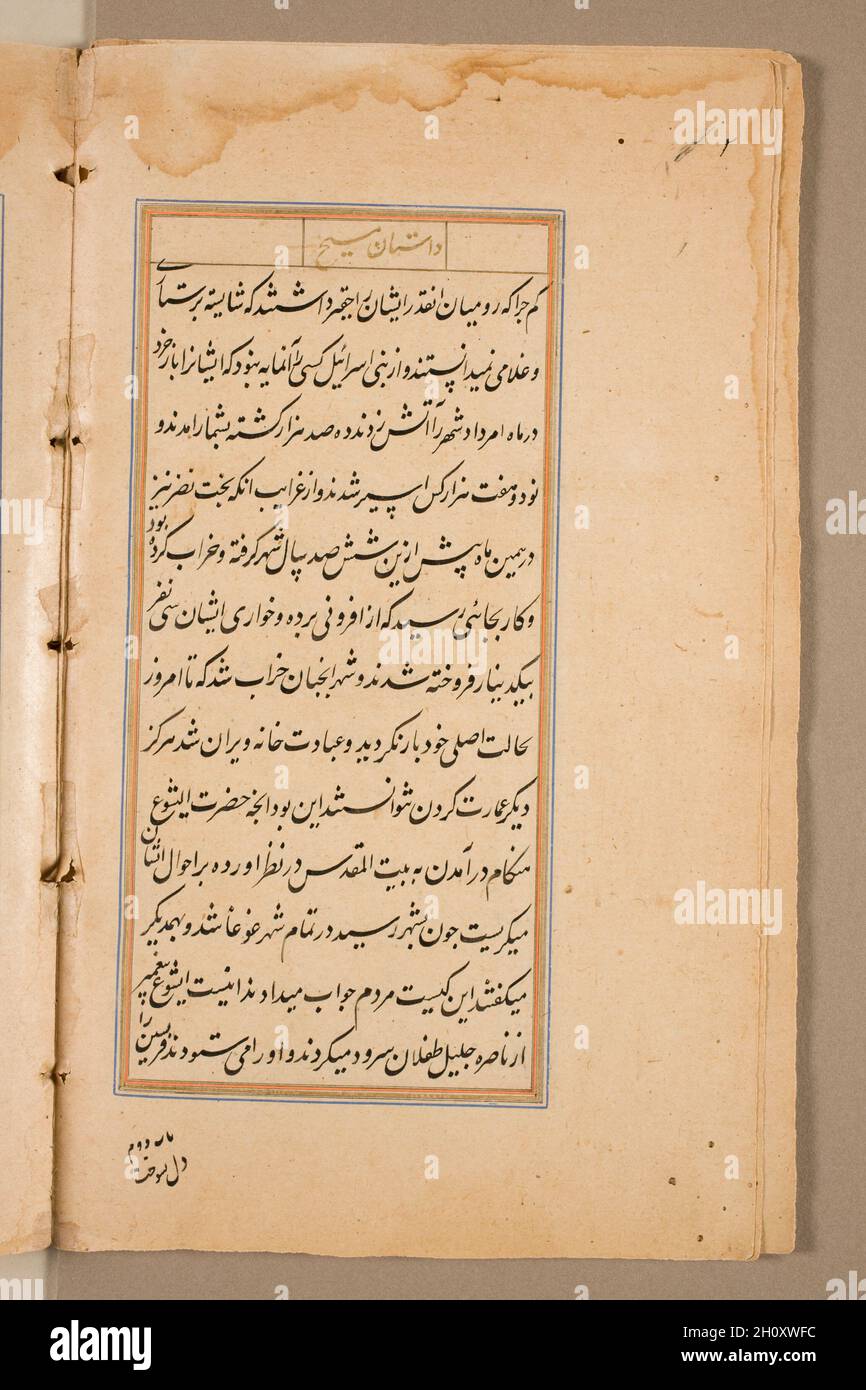 داستان مسیح
کم چرا که رومیان انقدر ایشان را حقیر داشتند که شایسته پرستاری
و غلامی نمیدانستند و از بنی اسرائیل کسی را آنمایه نبود که ایشانرا باز خرد
در ماه امرداد شهر را آتش زدند ده صد هزار کشته بشمار امدند و
نود و هفت هزار کس اسیر شدند و از غرایب انکه بخت نصر نیز
در همین ماه پیش ازین شش صد سال شهر گرفته و خراب کرده بود
و کار بجائی رسید که از افزونی برده و خواری ایشان سی نفر
بیکدینار فروخته شدند و شهر انچنان خراب شد که تا امروز
بحالت اصلی خود باز نکردید و عبادت خانه ویران شد هرکز
دیکر عمارت کردن نتوانستند این بود انچه حضرت ایشوع
هنکام در آمدن به بیت المقدس در نظر اورده بر احوال ایشان
میکریست چون بشهر رسید در تمام شهر غوغا شد و بهمدیکر
میکفتند این کیست مردم جواب میدادند اینست ایشوع پیغمبر
از ناصره جلیل طفلان سرود میکردند و او را می ستودند فریسین را
دل سوخت
alamy
Image ID: 2H0XWFC
www.alamy.com